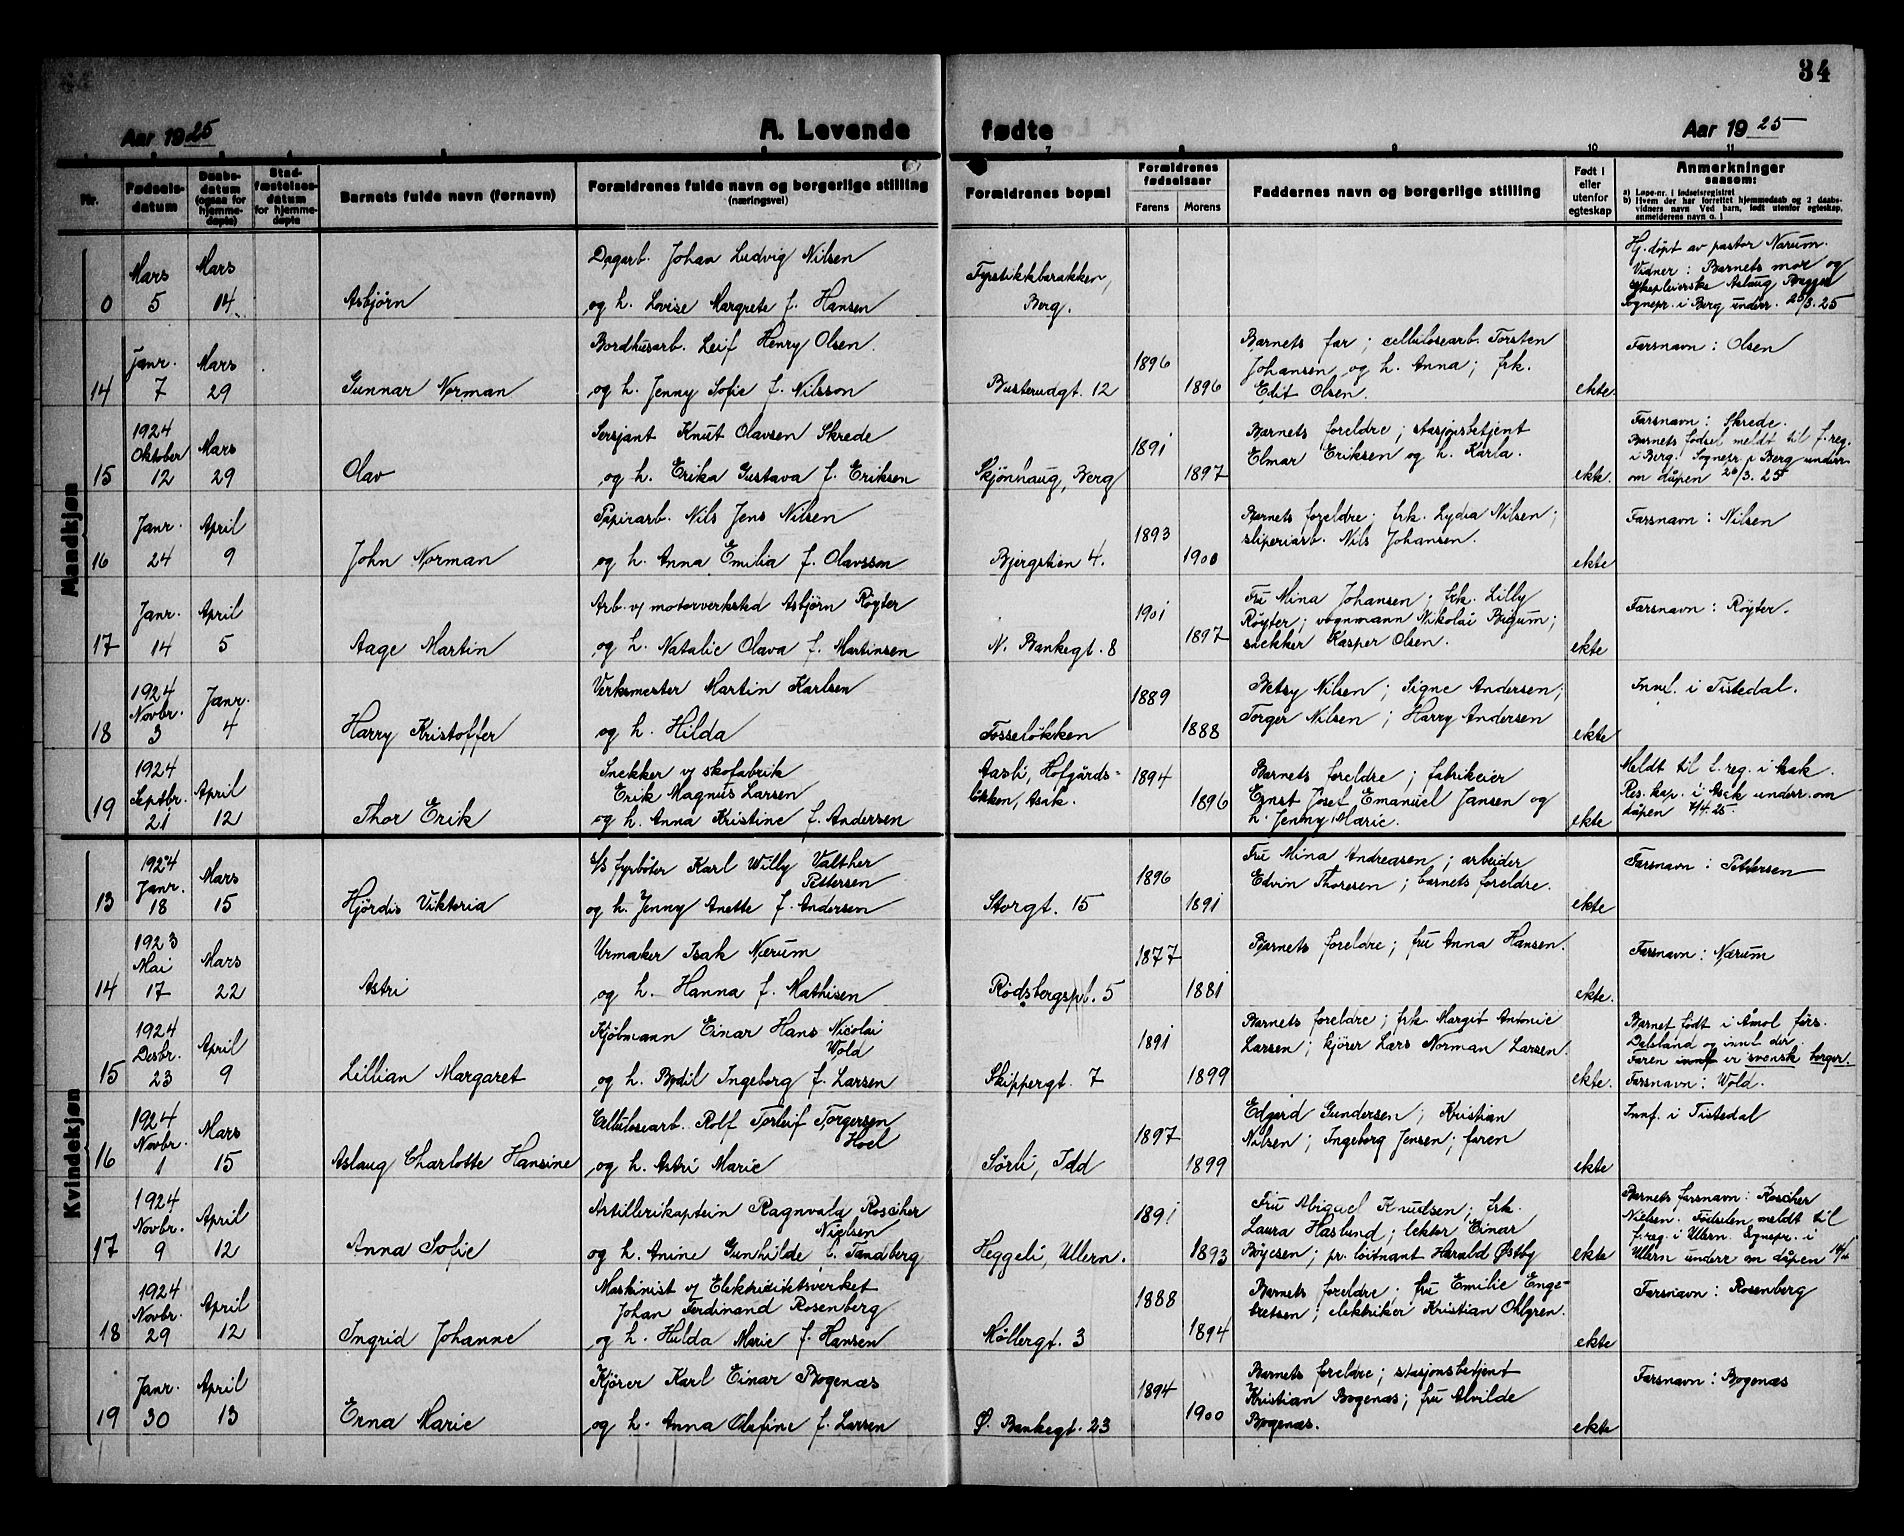 34
Aar 1925
A. Levende fødte
Aar 1925
Nr.
Fødsels-datum
Daabs-datum (ogsaa for hjemme-døpte)
Stad-fæstelses-datum for hjemme-døpte
Barnets fulde navn (fornavn)
Formldrenes fulde navn og borgerlige stilling (næringsvei)
7
8
9
10
11
Formldrenes bopæl
Formldrenes fødselsaar
Farens
Morens
Faddernes navn og borgerlige stilling
Født i eller utenfor egteskap
Anmerkninger saasom:
a) Løpe-nr. i fødselsregistret
b) Hvem der har forrettet hjemmedaab og 2 daabs-
vidners navn. Ved barn, født utenfor egteskap,
anmelderens navn o. l.
Mandkjøn
Mars
5
Mars
14
0
Asbjørn
Dagarb. Johan Ludvig Nilsen
og h. Lovise Margrete f. Hansen
Fyrstikkbarakken,
Berg.
Hj.døpt av pastor Narum.
Vidner: Barnets mor og
Aslaug
Sognepr. i Berg underr. 20/3.25
14
Janr.
7
Mars
29
Gunnar Norman
Bordhusarb. Leif Henry Olsen.
og h. Jenny Sofie f. Nilsson
Busterudgt. 12
1896
1896
Barnets far; cellulosearb. Torsten
Johansen og h. Anna; frk.
Edit Olsen.
ekte.
Farsnavn: Olsen
15
1924
Oktober
12
Mars
29
Olav
Sersjant Knut Olavsen Skrede
og h. Erika Gustava f. Eriksen
Skjønhaug, Berg
1891
1897
Barnets foreldre; stasjonsbetjent
Elmar Eriksen og h. Karla.
ekte.
Farsnavn: Skrede.
Barnets fødsel meldt til f.reg.
i Berg. Sognepr. i Berg underr.
om dåpen 20/3.25
16
Janr.
24
April
9
John Norman
Papirarb. Nils Jens Nilsen
og h. Anna Emilia f. Olavsson
Bjergstien 4.
1893
1900
Barnets foreldre; frk. Lydia Nilsen;
sliperiarb. Nils Johansen.
ekte
Farsnavn: Nilsen
17
Janr.
14
April
5
Aage Martin
Arb. v/ motorverksted Asbjørn Røyter
og h. Natalie Olava f. Martinsen
N. Bankegt. 8
1901
1897
Fru Mina Johansen; frk. Lilly
Røyter; vognmann Nikolai Bigum;
snekker Kasper Olsen.
ekte
Farsnavn: Røyter.
18
1924
Novbr.
3
Janr.
4
Harry Kristoffer
Verksmester Martin Karlsen
og h. Hilda
Fosseløkken
1889
1888
Betsy Nilsen; Signe Andersen;
Torger Nilsen; Harry Andersen
ekte
Innf. i Tistedal.
19
1924
Septbr.
21
April
12
Thor Erik
Snekker v/ skofabrik
Erik Magnus Larsen
og h. Anna Kristine f. Andersen
Aasli, Hofgårds-
løkken, Asak.
1894
1896
Barnets foreldre; fabrikeier
Ernst Josef Emanuel Jansen og
h. Jenny Marie.
ekte
Meldt til f.reg. i Asak.
Res. kap. i Asak underr. om
dåpen 7/4.25.
Kvindekjøn
13
1924
Janr.
18
Mars
15
Hjørdis Viktoria
s/s fyrbøter Karl Willy Valther
Pettersen
og h. Jenny Anette f. Andersen
Storgt. 15
1896
1891
Fru Mina Andreasen; arbeider
Edvin Thoresen; barnets foreldre.
ekte
Farsnavn: Pettersen
14
1923
Mai
17
Mars
22
Astri
Urmaker Isak Nærum
og h. Hanna f. Mathisen
Rødsbergspl. 5
1877
1881
Barnets foreldre; fru Anna Hansen.
ekte.
Farsnavn: Nærum
15
1924
Desbr.
23
April
9
Lillian Margaret
Kjøbmann Einar Hans Nicolai
Wold
og h. Bodil Ingeborg f. Larsen
Skippergt. 7
1891
1899
Barnets foreldre; frk. Margit Antonie
Larsen; kjører Lars Norman Larsen.
ekte.
Barnet født i Åmol førs.
Dalsland og innf. der.
Faren innf er svensk borger.
Farsnavn: Wold.
16
1924
Novbr.
1
Mars
15
Aslaug Charlotte Hansine
Cellulosearb. Rolf Torleif Torgersen
Hoel
og h. Astri Marie
Sørli, Idd
1897
1899
Edgard Gundersen; Kristian
Nilsen; Ingeborg Jensen; faren
ekte
Innf. i Tistedal
17
1924
Novbr.
9
April
12
Anna Sofie
Artillerikaptein Ragnvald Roscher
Nielsen
og h. Anine Gunhilde f. Tandberg
Heggeli, Ullern.
1891
1893
Fru Abigael Knudsen; frk.
Laura Haslund; lektor Einar
Boyesen; pr. løitnant Harald Østby
ekte
Barnets farsnavn: Roscher
Nielsen. Fødselen meldt til
f.reg. i Ullern. Sognepr. i
Ullern underr om dåpen 14/4
18
1924
Novbr.
29
April
12
Ingrid Johanne
Maskinist v/ Elektricitetsverket
Johan Ferdinand Rosenberg
og h. Hulda Marie f. Hansen
Møllergt. 3
1888
1894
Barnets foreldre; fru Emilie Enge-
bretsen; elektriker Kristian Ohlgren.
ekte
Farsnavn: Rosenberg
19
Janr.
30
April
13
Erna Marie
Kjører Karl Einar Bogenæs
og h. Anna Olefine f. Larsen
Ø. Bankegt. 23
1894
1900
Barnets foreldre; stasjonsbetjent
Kristian Bogenæs; fru Alvilde
Bogenæs.
ekte
Farsnavn: Bogenæs